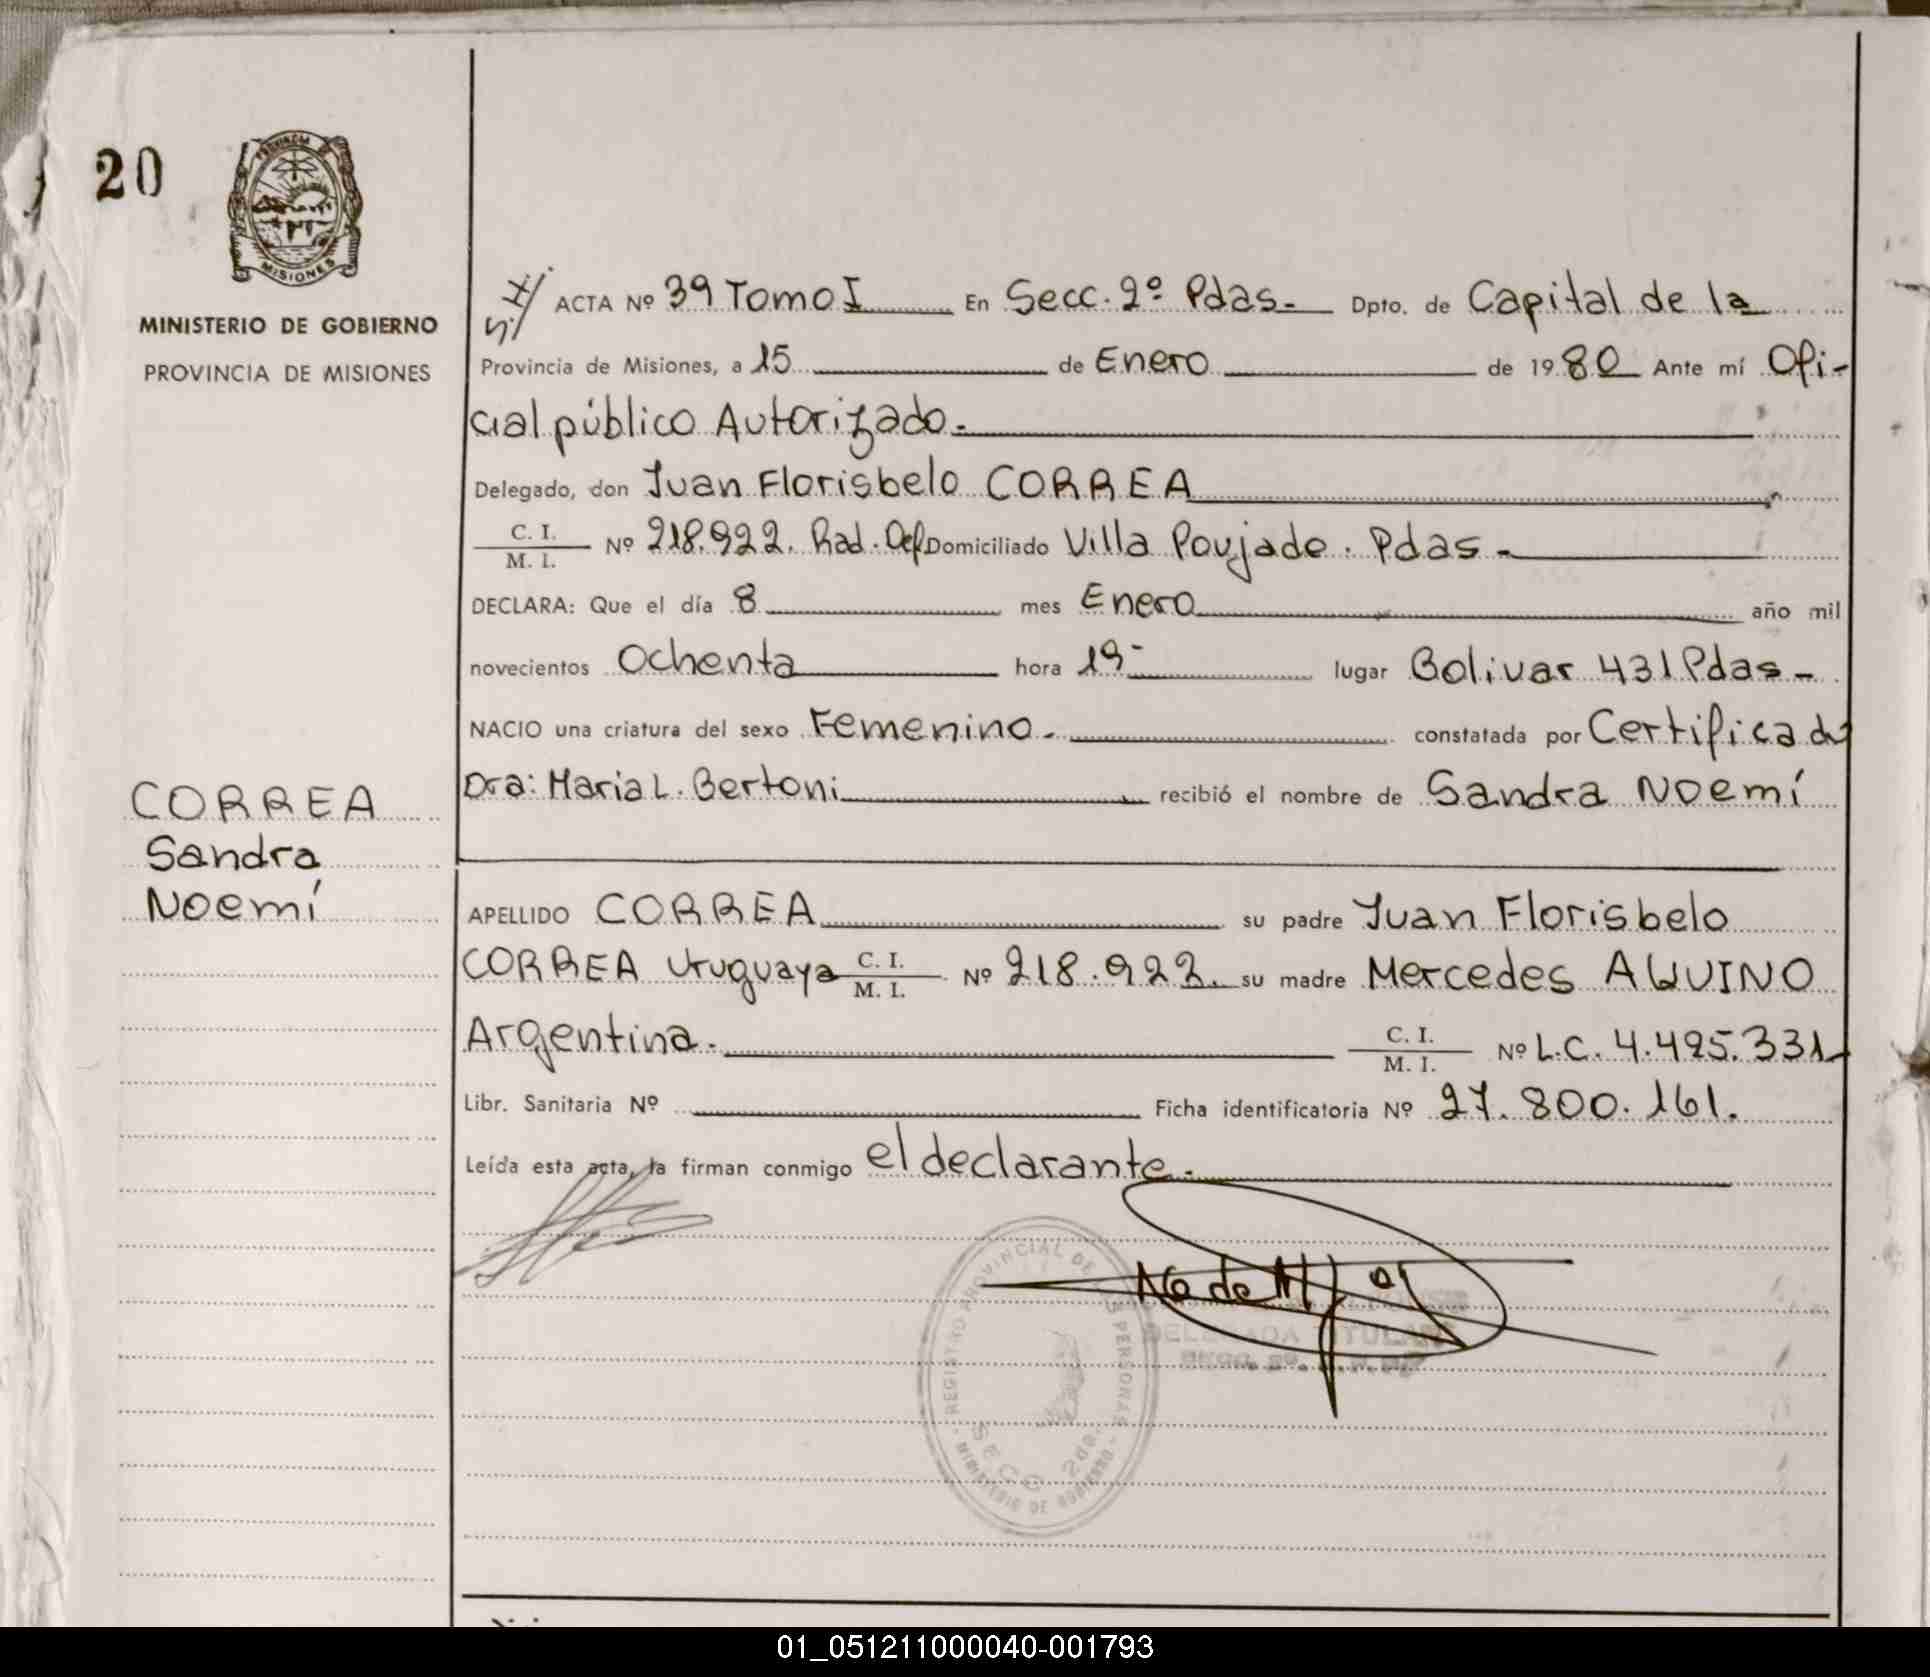 20
PROVINCIA DE
MISIONES
MINISTERIO DE GOBIERNO
PROVINCIA DE MISIONES
CORREA
Sandra
Noemí
S.H/. ACTA Nº 39 Tomo I En Secc. 2º Pdas. Dpto. de Capital de la
Provincia de Misiones, a 15 de Enero de 1980 Ante mí Ofi-
cial público Autorizado.
Delegado, don Juan Florisbelo CORREA
C. I. / M. I. Nº 218.922. Rad. Def Domiciliado Villa Poujade. Pdas.
DECLARA: Que el día 8 mes Enero año mil
novecientos Ochenta hora 19 lugar Bolivar 431 Pdas.
NACIO una criatura del sexo Femenino. constatada por Certificado
Dra: Maria L. Bertoni recibió el nombre de Sandra Noemí
APELLIDO CORREA su padre Juan Florisbelo
CORREA Uruguaya C. I. / M. I. Nº 218.922. su madre Mercedes AQUINO
Argentina. C. I. / M. I. Nº L.C. 4.495.331
Libr. Sanitaria Nº Ficha identificatoria Nº 27.800.161.
Leída esta acta, la firman conmigo el declarante.
REGISTRO PROVINCIAL DE LAS PERSONAS
SECC 2da.
MINISTERIO DE GOBIERNO
DELEGADA TITULAR
01_051211000040-001793